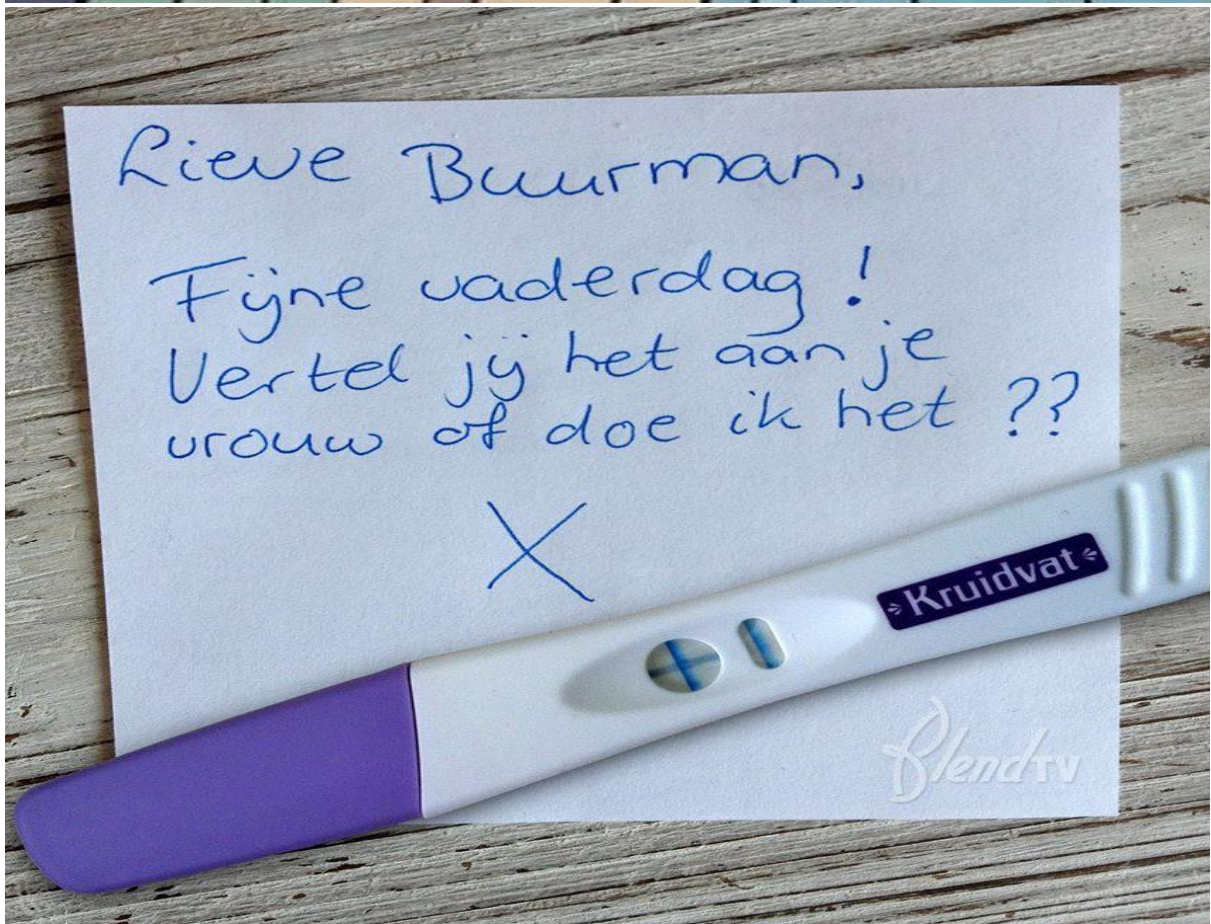 Lieve Buurman,
Fijne vaderdag !
Vertel jij het aan je
vrouw of doe ik het ??
X
Kruidvat
Blend TV